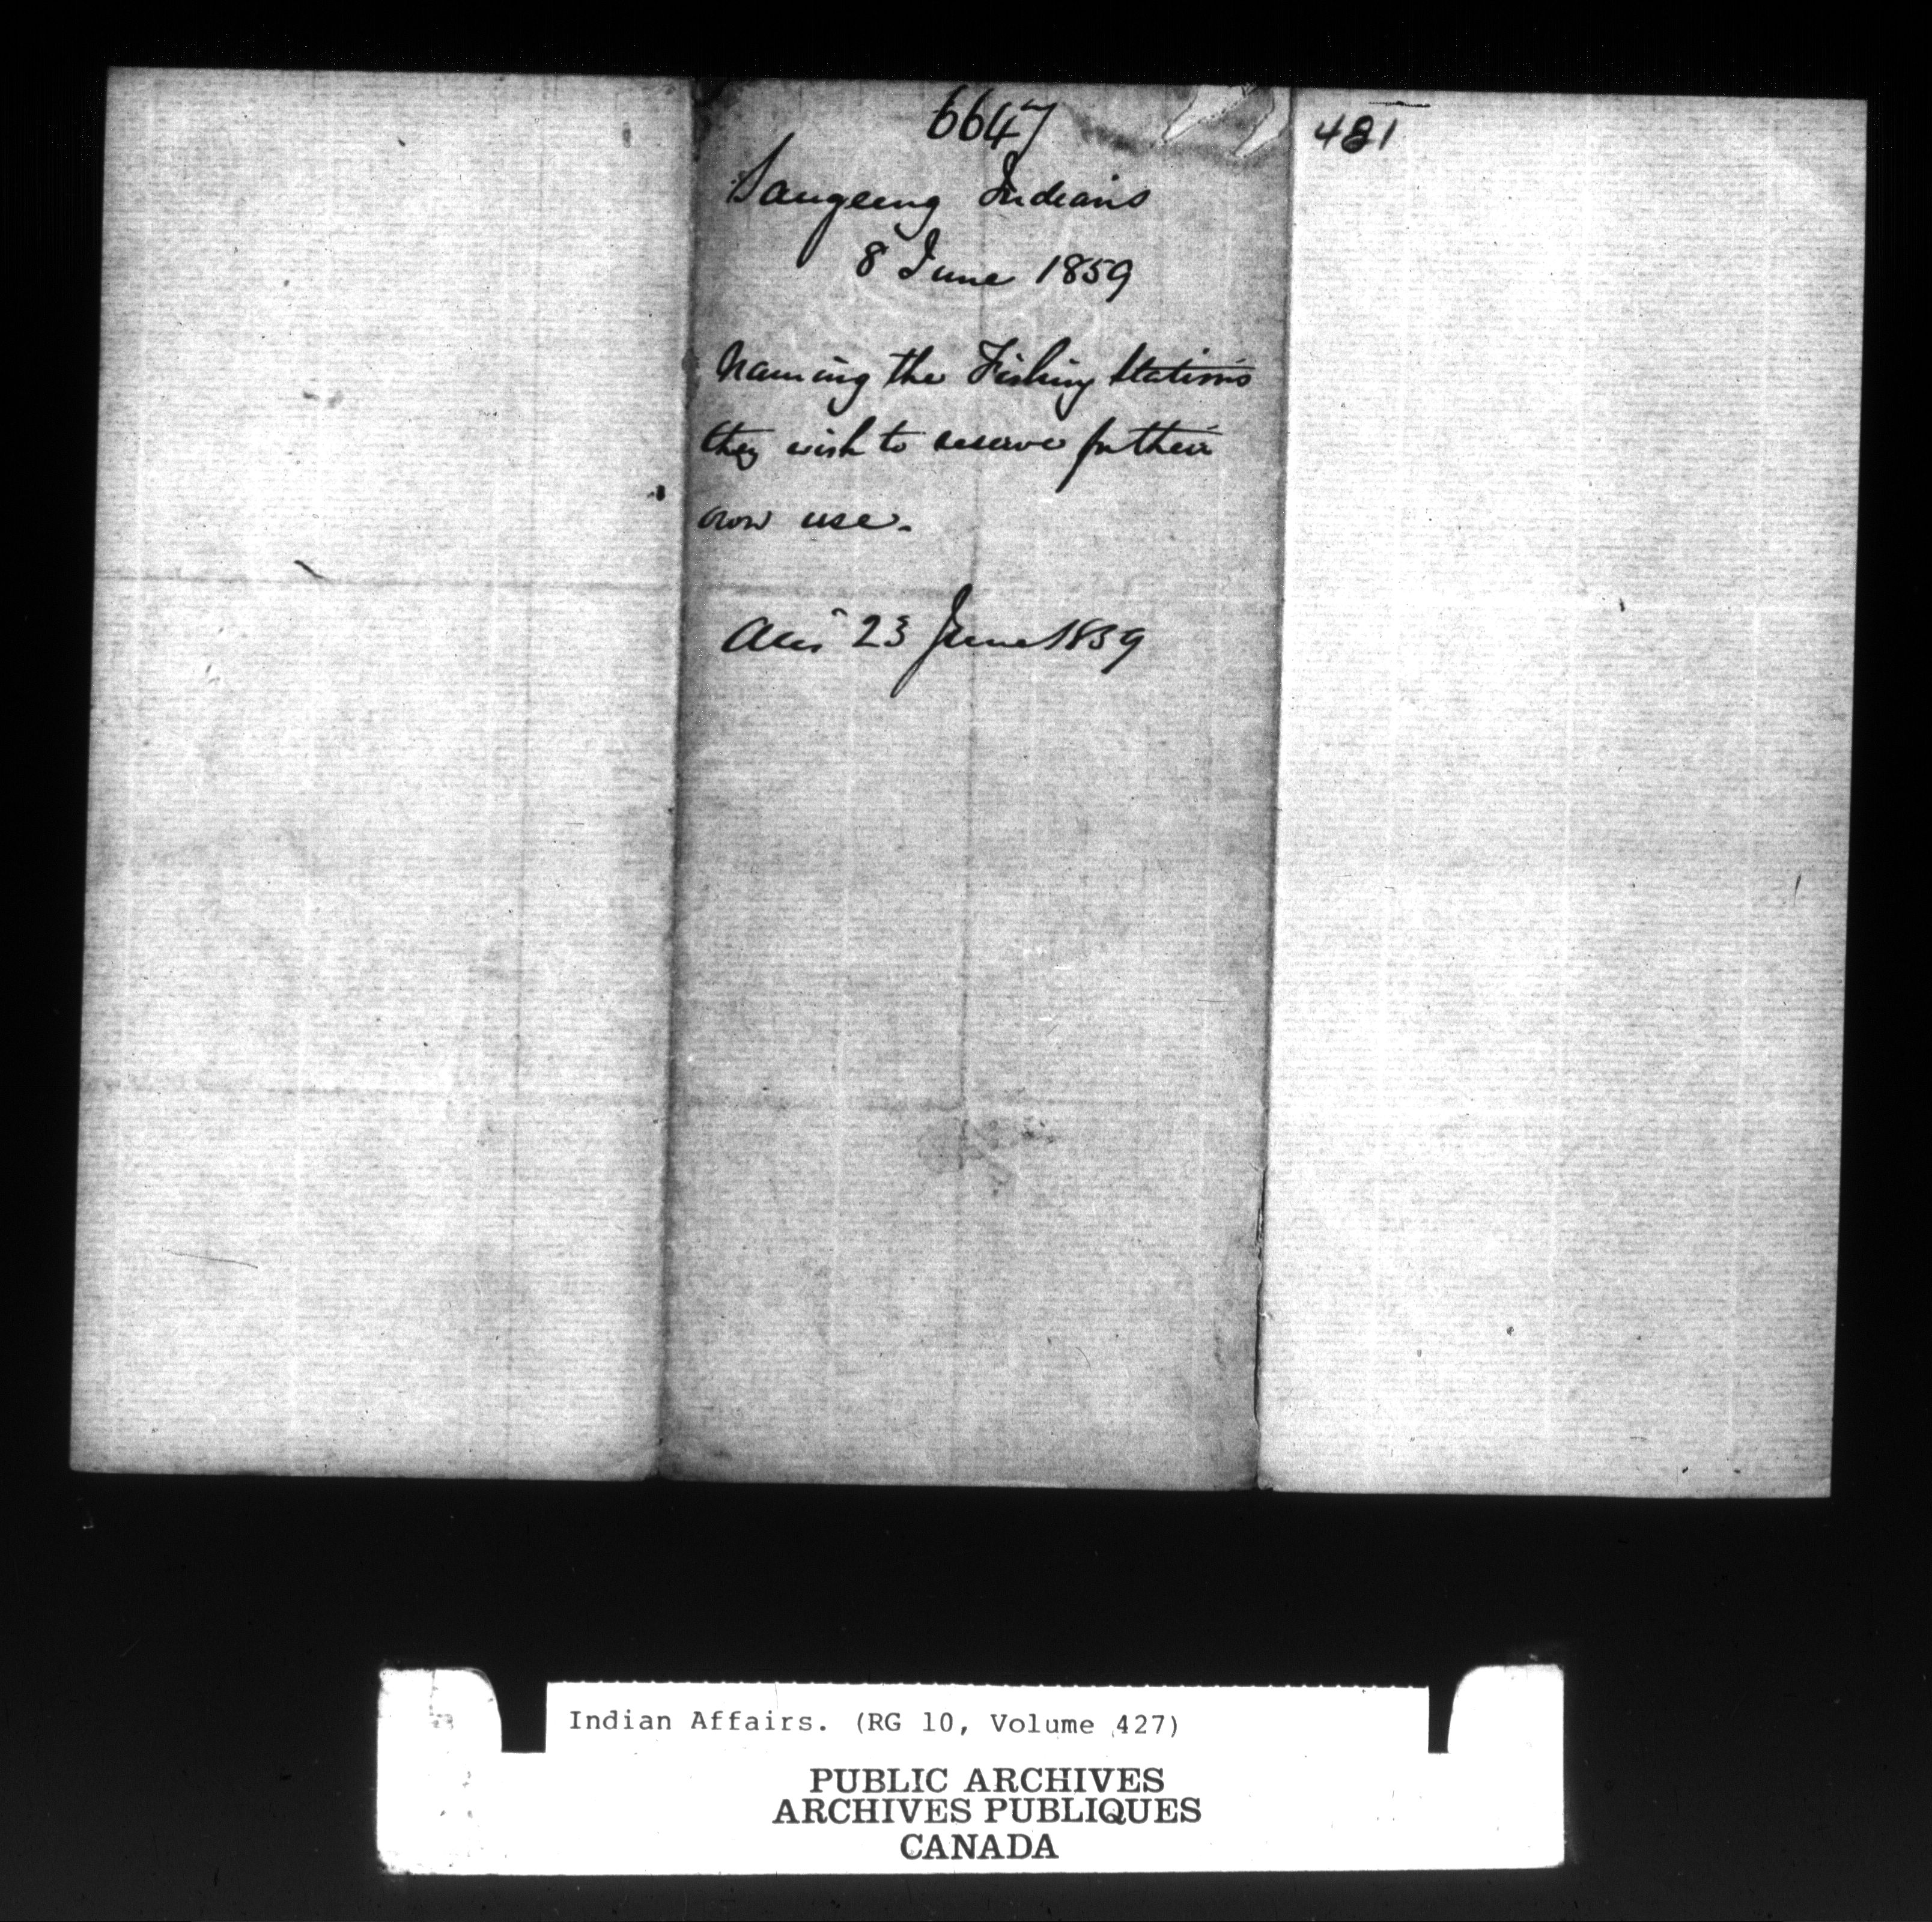 6647
481
Saugeeng Indians
8 June 1859
Naming the Fishing Stations
they wish to reserve for their
own use.
Ans 23 June 1859
Indian Affairs. (RG 10, Volume 427)
PUBLIC ARCHIVES
ARCHIVES PUBLIQUES
CANADA